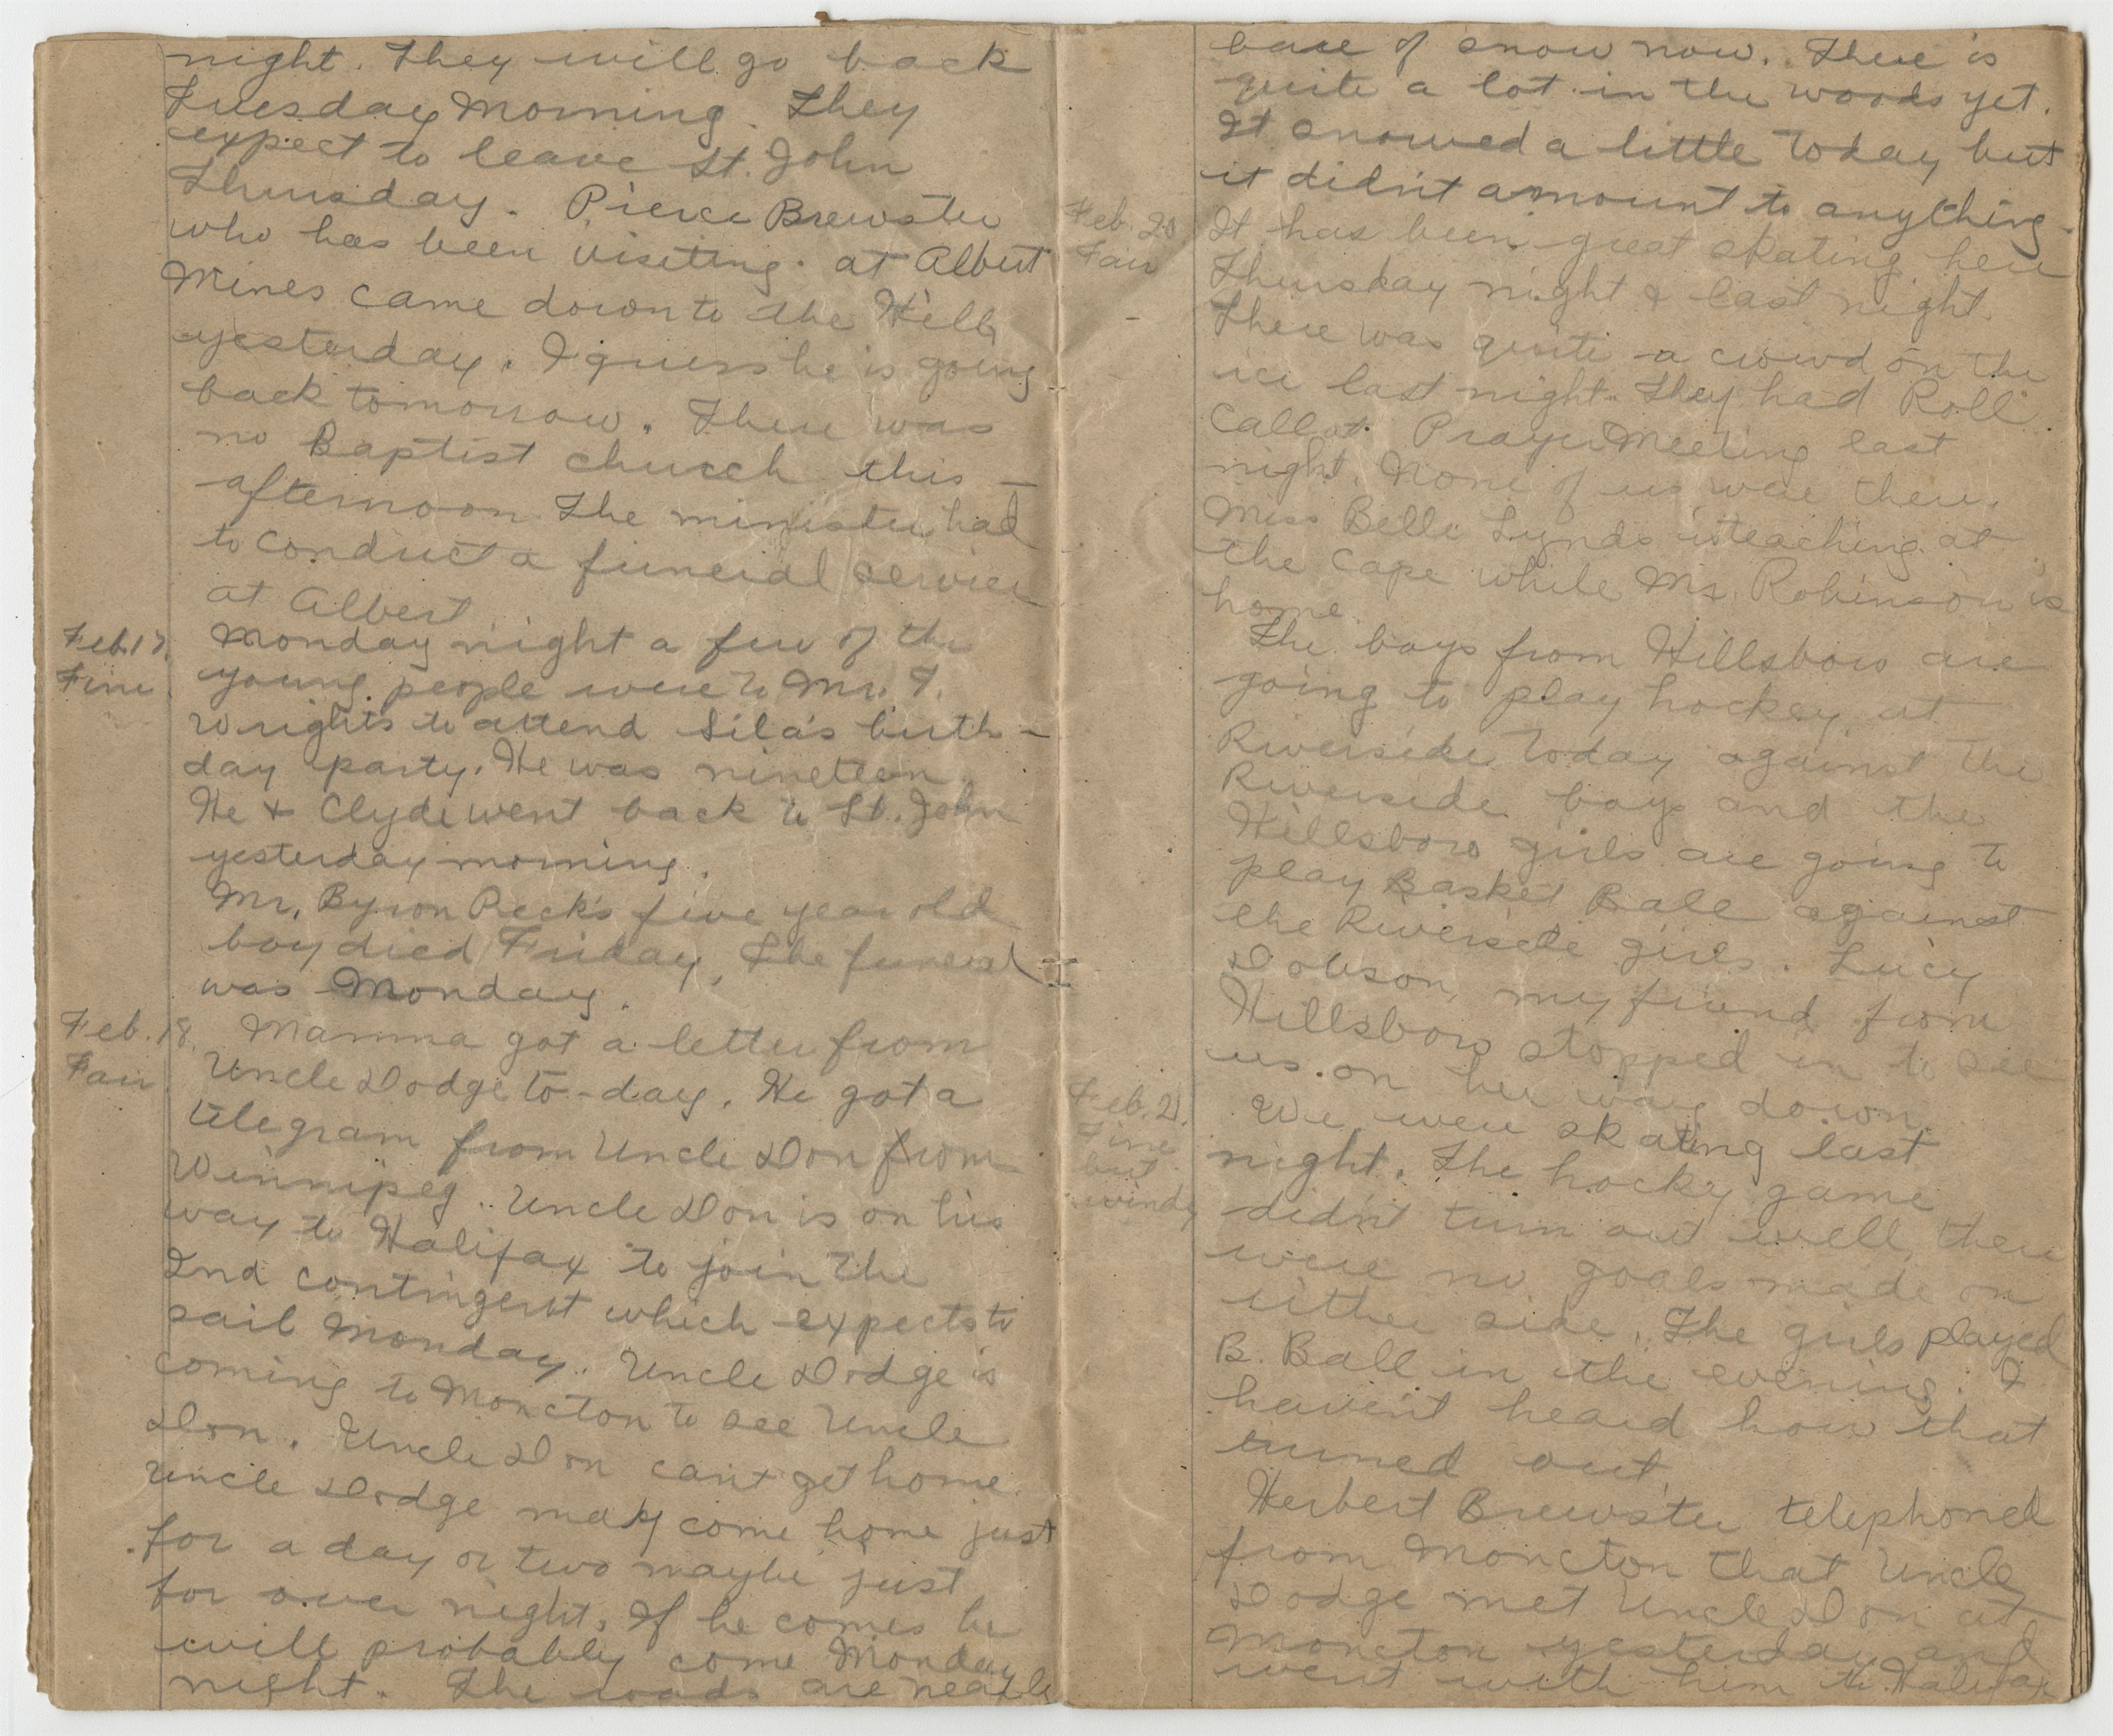 night. They will go back
Tuesday Morning. They
expect to leave St. John
Thursday. Pierce Brewster
who has been visiting at Albert
Mines came down to the Hill
yesterday. I guess he is going
back tomorrow. There was
no Baptist church this
afternoon The minister had
to conduct a funeral service
at Albert
Feb. 17.
Fine.
Monday night a few of the
young people were to Mr. F.
Wrights to attend Sila's birth-
day party. He was nineteen.
He & Clyde went back to St. John
yesterday morning.
Mr. Byron Peck's five year old
boy died Friday. The funeral
was Monday.
Feb. 18.
Fair.
Mamma got a letter from
Uncle Dodge to-day. He got a
telegram from Uncle Don from
Winnipeg. Uncle Don is on his
way to Halifax to join the
2nd contingent which expects to
sail Monday. Uncle Dodge is
coming to Moncton to see Uncle
Don. Uncle Don can't get home.
Uncle Dodge may come home just
for a day or two maybe just
for over night. If he comes he
will probably come Monday
night. The roads are nearly
bare of snow now. There is
quite a lot in the woods yet.
It snowed a little today but
it didn't amount to anything.
Feb. 20
Fair
It has been great skating here
Thursday night & last night.
There was quite a crowd on the
ice last night. They had Roll
Call at Prayer Meeting last
night. None of us were there.
Miss Belle Lynds is teaching at
the Cape while Ms. Robinson is
home.
The boys from Hillsboro are
going to play hockey at
Riverside today against the
Riverside boys and the
Hillsboro girls are going to
play Basket Ball against
the Riverside girls. Lucy
Dobson, my friend from
Hillsboro stopped in to see
us on her way down.
Feb. 21.
Fine
but
windy
We were skating last
night. The hocky game
didn't turn out well, there
were no goals made on
either side. The girls played
B. Ball in the evening. I
haven't heard how that
turned out.
Herbert Brewster telephoned
from Moncton that Uncle
Dodge met Uncle Don at
Moncton yesterday and
went with him to Halifax